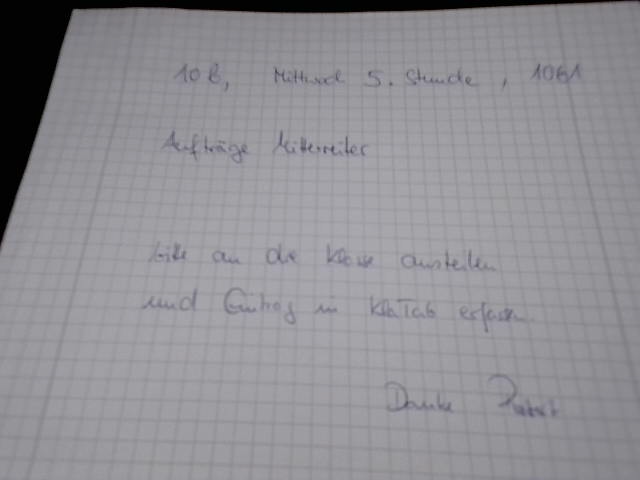 10B, Mittwoch 5. Stunde, 1061
Aufträge Mitterreiter
bitte an die Klasse austeilen
und Eintrag in KlaTab erfassen
Danke